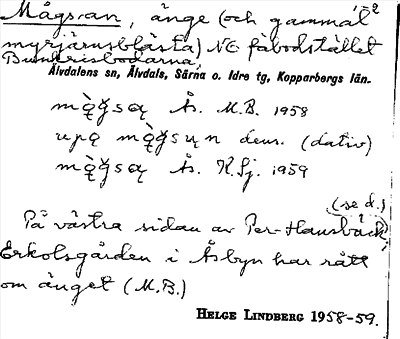 Mågsan, änge (och gammal
myrjärnsblästa) NO fäbodstället
Bunkrisbodarna,
Älvdalens sn, Älvdals, Särna o. Idre tg, Kopparbergs län.
Ås. M.B. 1958
dens. (dativ)
Ås. K.Sj. 1959
(se d.)
På västra sidan av Per-Hansbäck,
Erkolsgården i Åsbyn har rått
om änget (M.B.)
HELGE LINDBERG 1958-59.